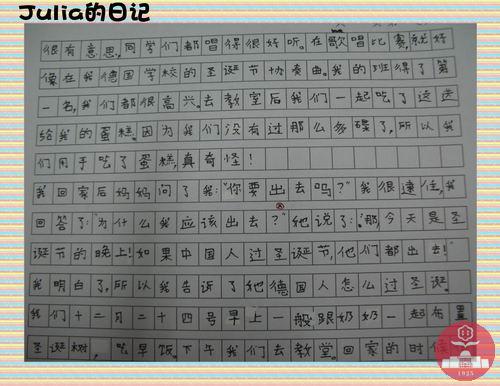 Julia的日记
很有意思,同学们都唱得很好听。在歌唱比赛就好
像在我德国学校的圣诞节协奏曲。我的班得了第
一名,我们都很高兴。去教室后我们一起吃了这送
给我的蛋糕。因为我们没有过那么多碟了,所以我
们用手吃了蛋糕,真奇怪!
我回家后妈妈问了我:"你要出去吗?"我很逮住,我
回答了:"为什么我应该出去?"她说了:"那,今天是圣
诞节的晚上!如果中国人过圣诞节,他们都出去!"
我明白了,所以我告诉了她德国人怎么过圣诞。
我们十二月二十四号早上一般跟奶奶一起布置
圣诞树,吃早饭。下午我们去教堂。回家的时候
1925